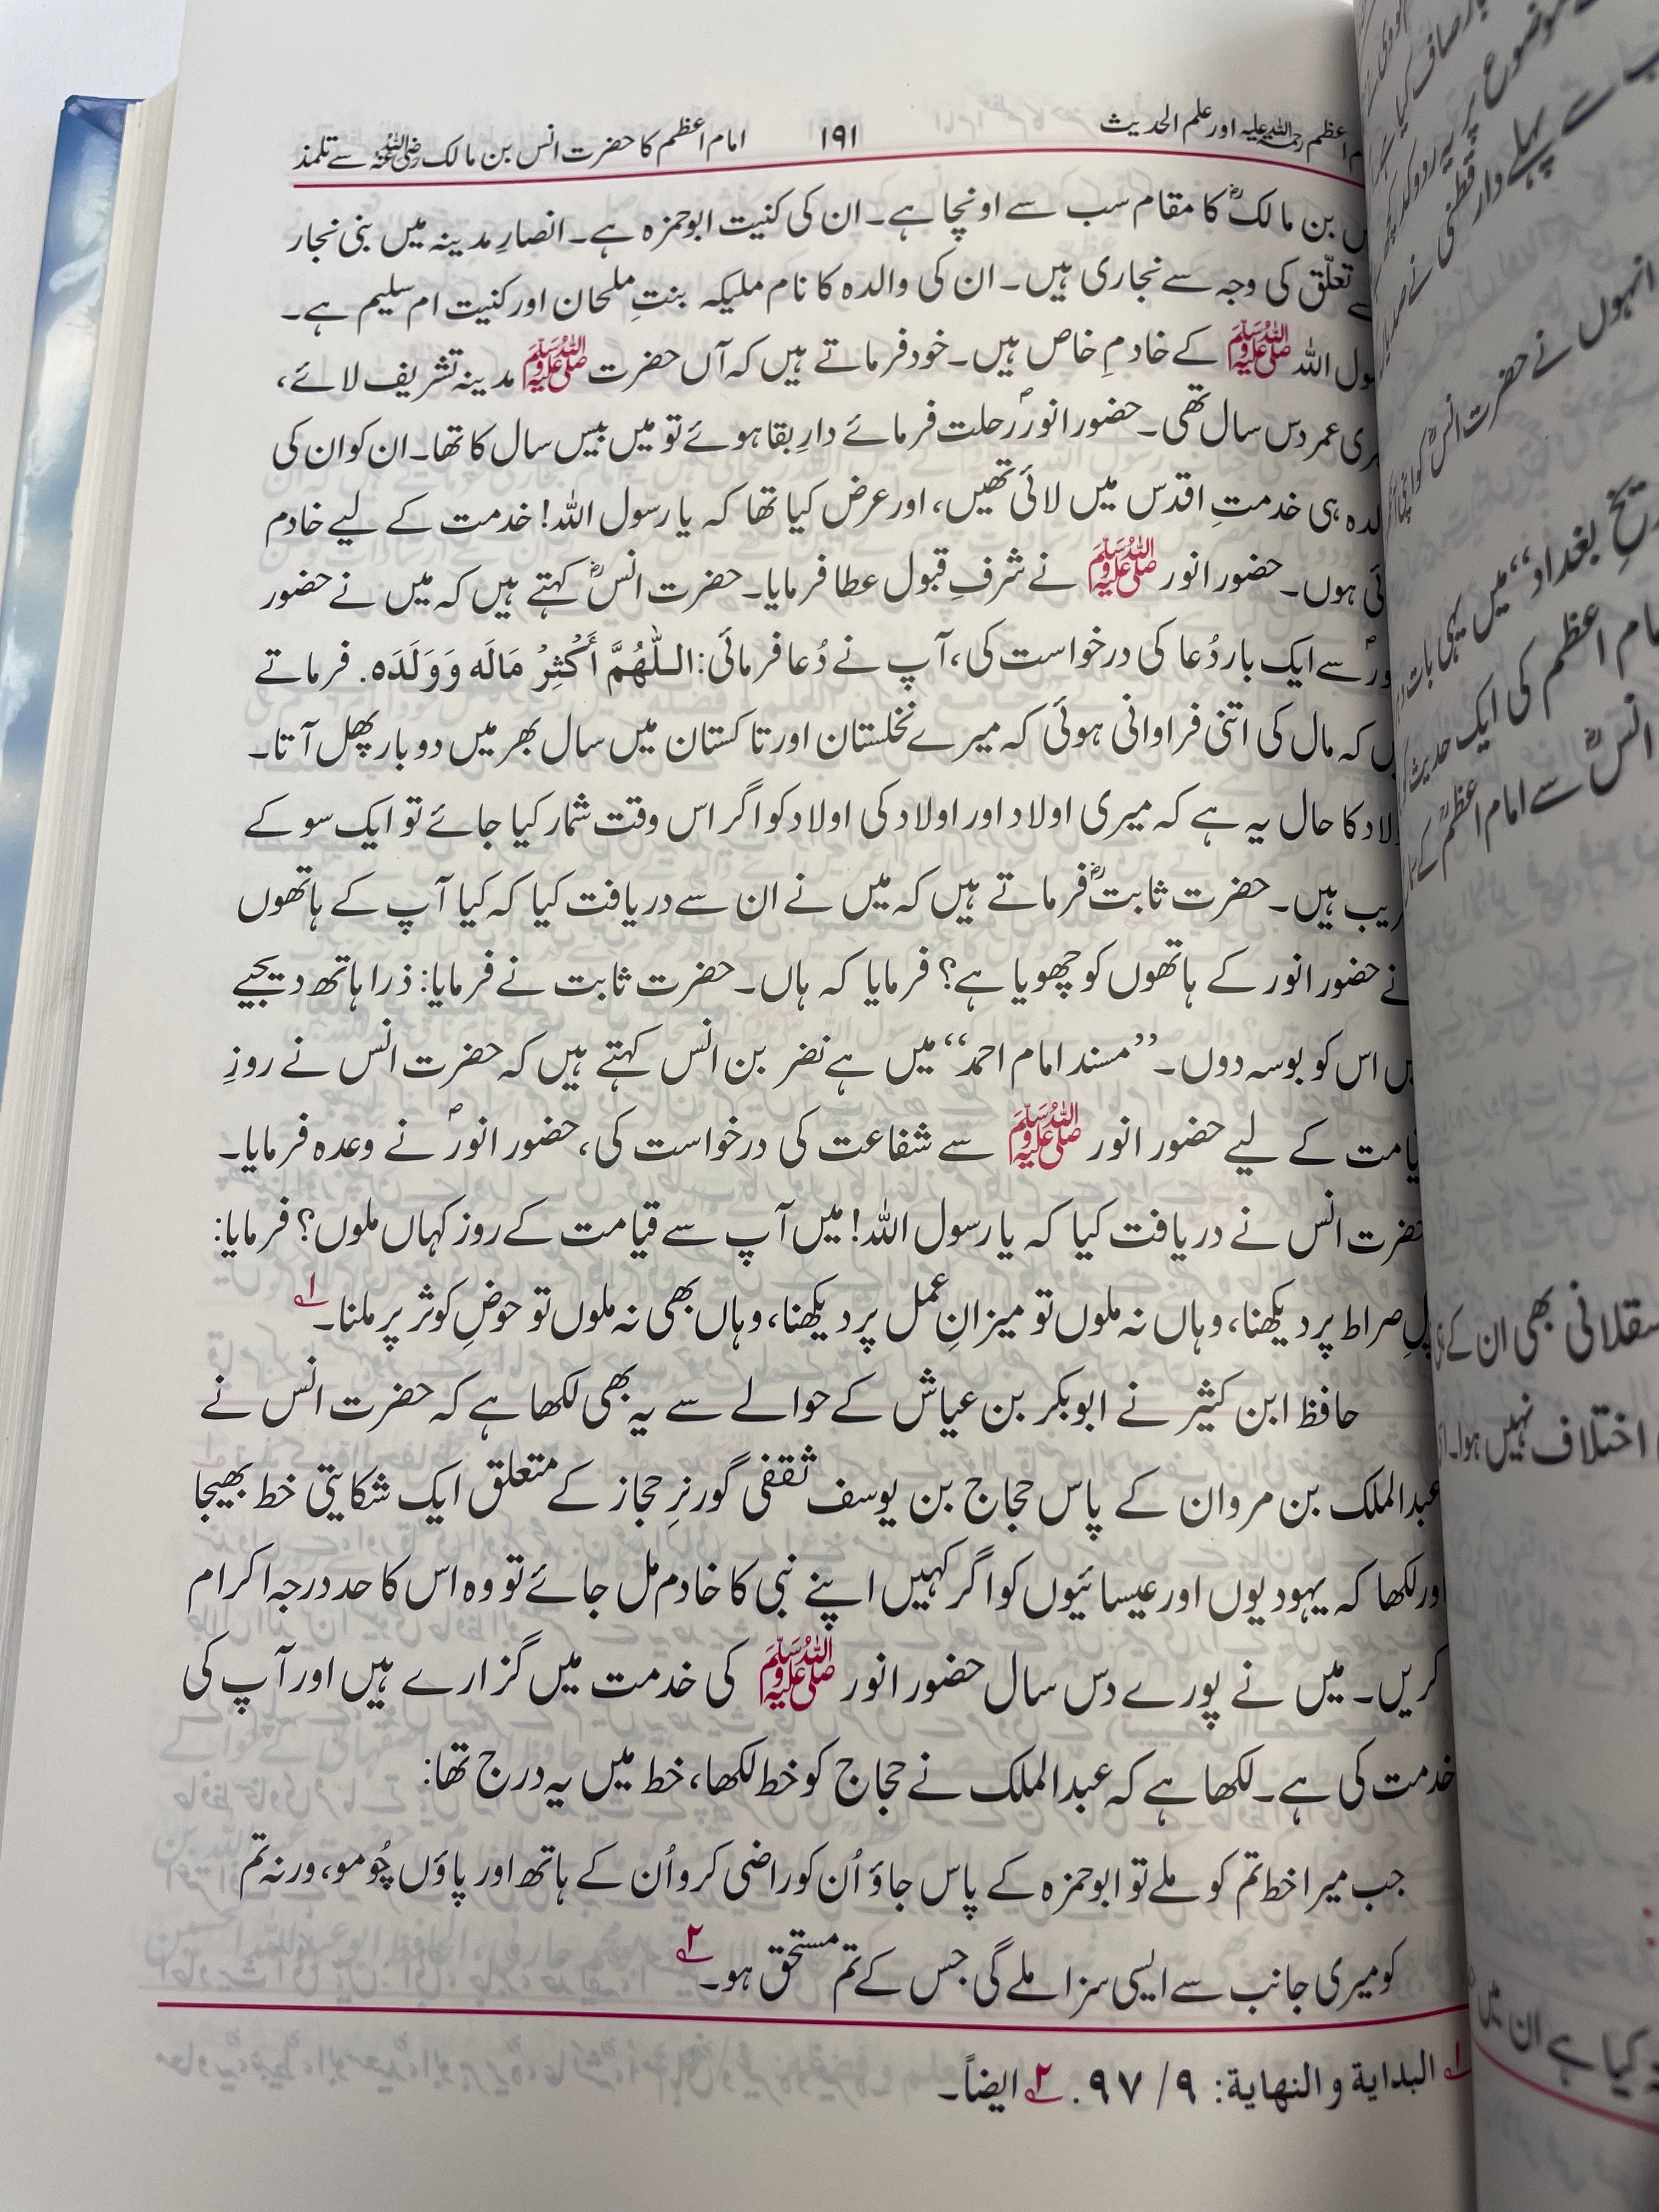 اعظم رحمۃ اللہ علیہ اور علم الحدیث ۱۹۱ امام اعظم کا حضرت انس بن مالک رضی اللہ عنہ سے تلمذ
بن مالکؓ کا مقام سب سے اونچا ہے۔ ان کی کنیت ابوحمزہ ہے۔ انصارِ مدینہ میں بنی نجار
تعلّق کی وجہ سے نجاری ہیں۔ ان کی والدہ کا نام ملیکہ بنتِ ملحان اور کنیت ام سلیم ہے۔
اللہ ﷺ کے خادمِ خاص ہیں۔ خود فرماتے ہیں کہ آں حضرت ﷺ مدینہ تشریف لائے،
عمر دس سال تھی۔ حضور انورؐ رحلت فرمائے دارِ بقا ہوئے تو میں بیس سال کا تھا۔ ان کو ان کی
ہی خدمتِ اقدس میں لائی تھیں، اور عرض کیا تھا کہ یا رسول اللہ! خدمت کے لیے خادم
ہوں۔ حضور انور ﷺ نے شرفِ قبول عطا فرمایا۔ حضرت انسؓ کہتے ہیں کہ میں نے حضور
سے ایک بار دُعا کی درخواست کی، آپ نے دُعا فرمائی: اللّٰهُمَّ أَكْثِرْ مَالَه وَوَلَدَه. فرماتے
کہ مال کی اتنی فراوانی ہوئی کہ میرے نخلستان اور تاکستان میں سال بھر میں دو بار پھل آتا۔
کا حال یہ ہے کہ میری اولاد اور اولاد کی اولاد کو اگر اس وقت شمار کیا جائے تو ایک سو کے
ہیں۔ حضرت ثابتؓ فرماتے ہیں کہ میں نے ان سے دریافت کیا کہ کیا آپ کے ہاتھوں
نے حضور انور کے ہاتھوں کو چھویا ہے؟ فرمایا کہ ہاں۔ حضرت ثابت نے فرمایا: ذرا ہاتھ دیجیے
اس کو بوسہ دوں۔ ’’مسند امام احمد‘‘ میں ہے نضر بن انس کہتے ہیں کہ حضرت انس نے روزِ
قیامت کے لیے حضور انور ﷺ سے شفاعت کی درخواست کی، حضور انورؐ نے وعدہ فرمایا۔
حضرت انس نے دریافت کیا کہ یا رسول اللہ! میں آپ سے قیامت کے روز کہاں ملوں؟ فرمایا:
پلِ صراط پر دیکھنا، وہاں نہ ملوں تو میزانِ عمل پر دیکھنا، وہاں بھی نہ ملوں تو حوضِ کوثر پر ملنا۔ ۱؎
حافظ ابن کثیر نے ابوبکر بن عیاش کے حوالے سے یہ بھی لکھا ہے کہ حضرت انس نے
عبدالملک بن مروان کے پاس حجاج بن یوسف ثقفی گورنرِ حجاز کے متعلق ایک شکایتی خط بھیجا
اور لکھا کہ یہودیوں اور عیسائیوں کو اگر کہیں اپنے نبی کا خادم مل جائے تو وہ اس کا حد درجہ اکرام
کریں۔ میں نے پورے دس سال حضور انور ﷺ کی خدمت میں گزارے ہیں اور آپ کی
خدمت کی ہے۔ لکھا ہے کہ عبدالملک نے حجاج کو خط لکھا، خط میں یہ درج تھا:
جب میرا خط تم کو ملے تو ابوحمزہ کے پاس جاؤ اُن کو راضی کرو اُن کے ہاتھ اور پاؤں چُومو، ورنہ تم
کو میری جانب سے ایسی سزا ملے گی جس کے تم مستحق ہو۔ ۲؎
۱؎ البدایة و النهایة: ۹/ ۹۷. ۲؎ ایضاً۔
موضوع پر یہ
سے پہلے دارقطنی نے
انہوں نے حضرت انسؓ کو
بغداد‘‘ میں یہی بات
امام اعظم کی ایک حدیث
انسؓ سے امام اعظمؒ کے
بھی ان کے
اختلاف نہیں ہوا۔
کیا ہے ان میں